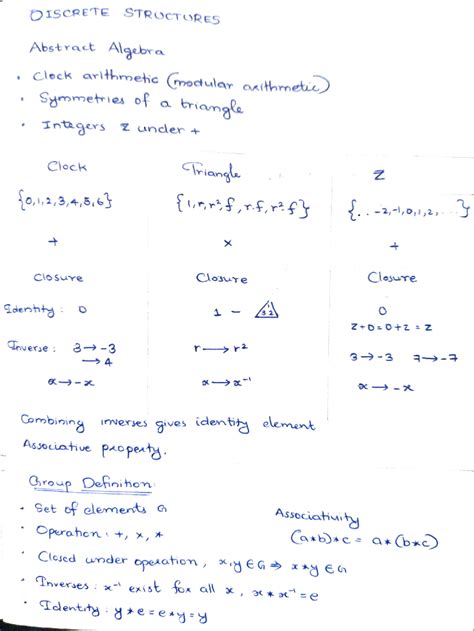 DISCRETE STRUCTURES
Abstract Algebra
• Clock arithmetic (modular arithmetic)
• Symmetries of a triangle
• Integers Z under +
Clock Triangle Z
{0,1,2,3,4,5,6} {1,r,r²,f,r.f,r².f} {...-2,-1,0,1,2,...}
+ × +
Closure Closure Closure
Identity: 0 1 - 0
Z+0=0+Z=Z
Inverse: 3→-3 r→r² 3→-3 7→-7
→4
x→-x x→x⁻¹ x→-x
Combining inverses gives identity element
Associative property.
Group Definition:
• Set of elements G
Associativity
• Operation: +, ×, *
(a*b)*c = a*(b*c)
• Closed under operation, x,y∈G ⇒ x*y∈G
• Inverses: x⁻¹ exist for all x, x*x⁻¹=e
• Identity: y*e=e*y=y